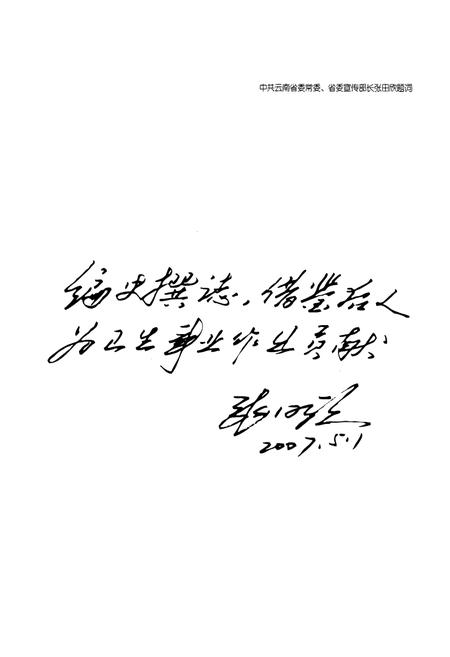 中共云南省委常委、省委宣传部长张田欣题词
编史撰志,借鉴后人
为卫生事业作出贡献
张田欣
2007.5.1